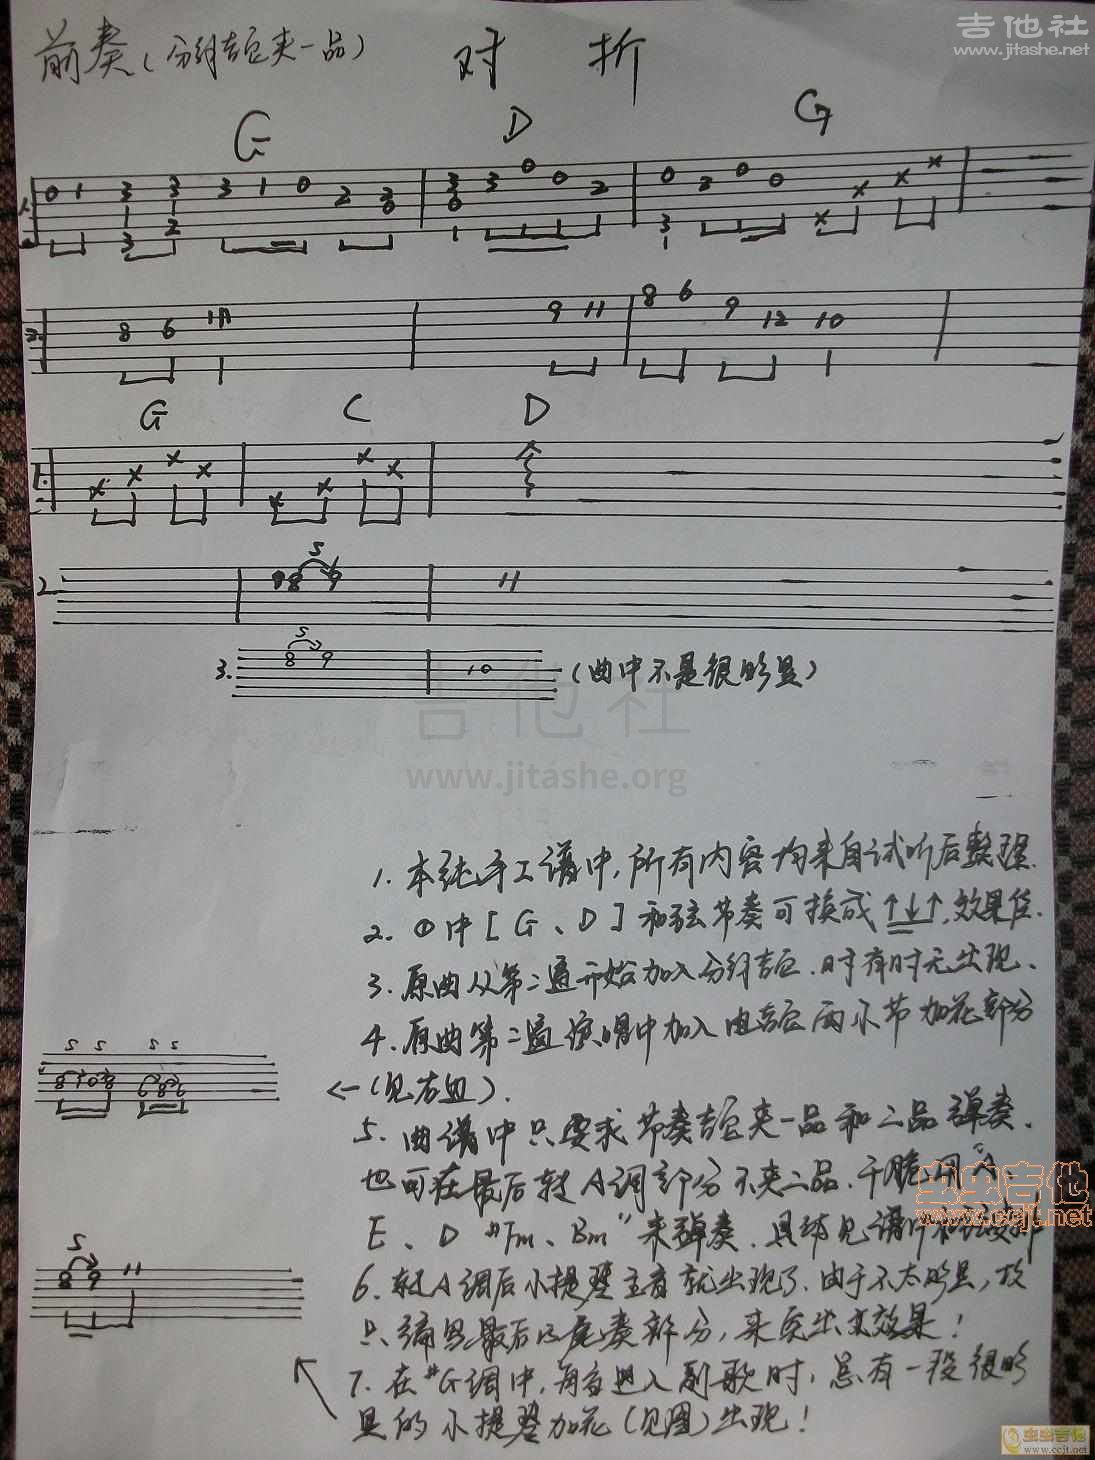 吉他社
www.jitashe.net
前奏(分钟吉它夹一品) 对 折
G D G
1.
0 1 3 3 3 1 0 2 3 3 3 0 0 2 0 2 0 0 × × ×
3 2 0 0 3 ×
2.
8 6 11 9 11 8 6 9 12 10
G C D
1.
× × × × × × × ×
2. 8 S 9 11
3. 8 S 9 10 (曲中不是很明显)
吉他社
www.jitashe.org
1. 本纯手工谱中,所有内容均来自试听后整理.
2. ①中[G、D]和弦节奏可换成↑↓↑,效果佳.
3. 原曲从第二遍开始加入分钟吉它.时有时无出现.
4. 原曲第二遍演唱中加入电吉它两小节加花部分
S S S S
8 10 8 6 8 6
←(见左图).
5. 曲谱中只要求节奏吉它夹一品和二品弹奏.
也可在最后转A调部分不夹二品.干脆用"A、
E、D #Fm、Bm"来弹奏.具体见谱
虫虫吉他
www.ccjt.net
S
8 9 11
6. 转A调后小提琴主音就出现了,由于不太明显,故
只编写最后的尾奏部分,来突出其效果!
7. 在#G调中,每音进入副歌时,总有一段很明
显的小提琴加花(见图)出现!
虫虫吉他
www.ccjt.net